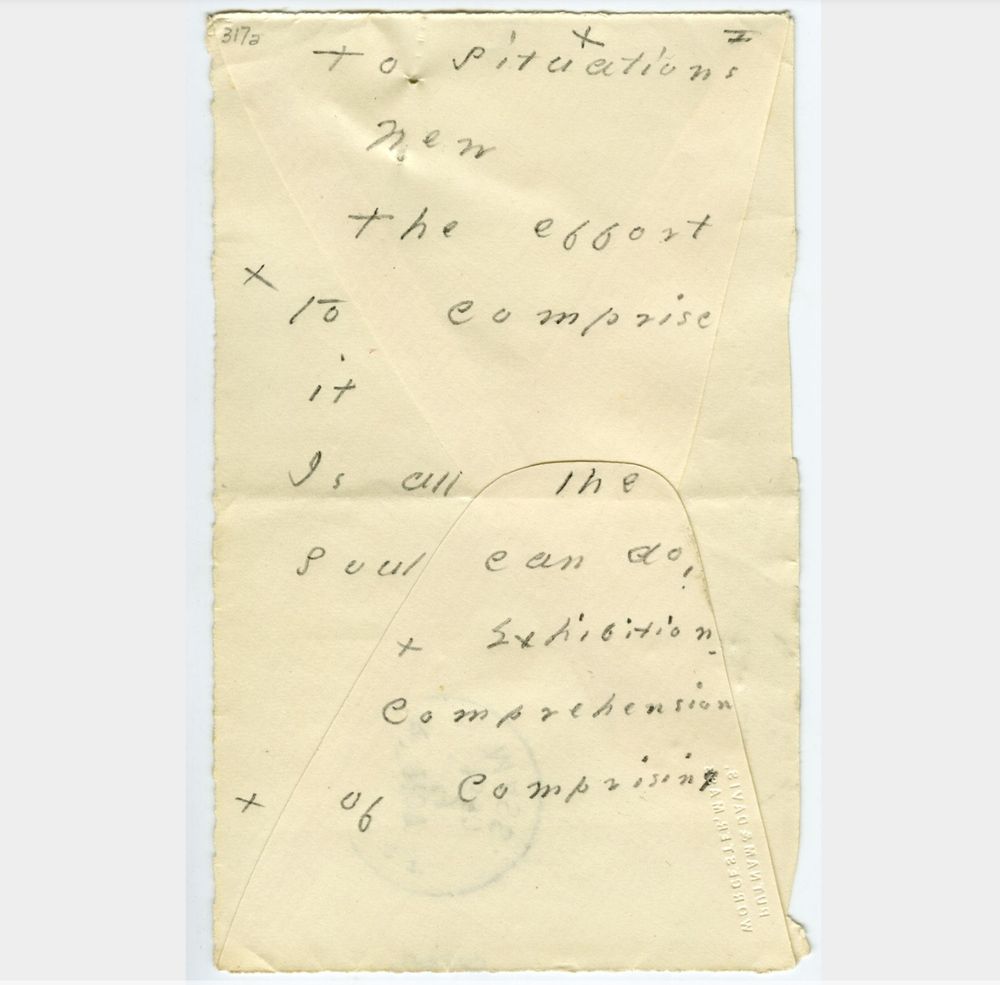 317a
+ I
To Situations
new
The effort
+ To comprise
it
Is all the
soul can do,
+ Exhibition
Comprehension
+ of Comprising
PUTNAM & DAVIS,
WORCESTER MASS.